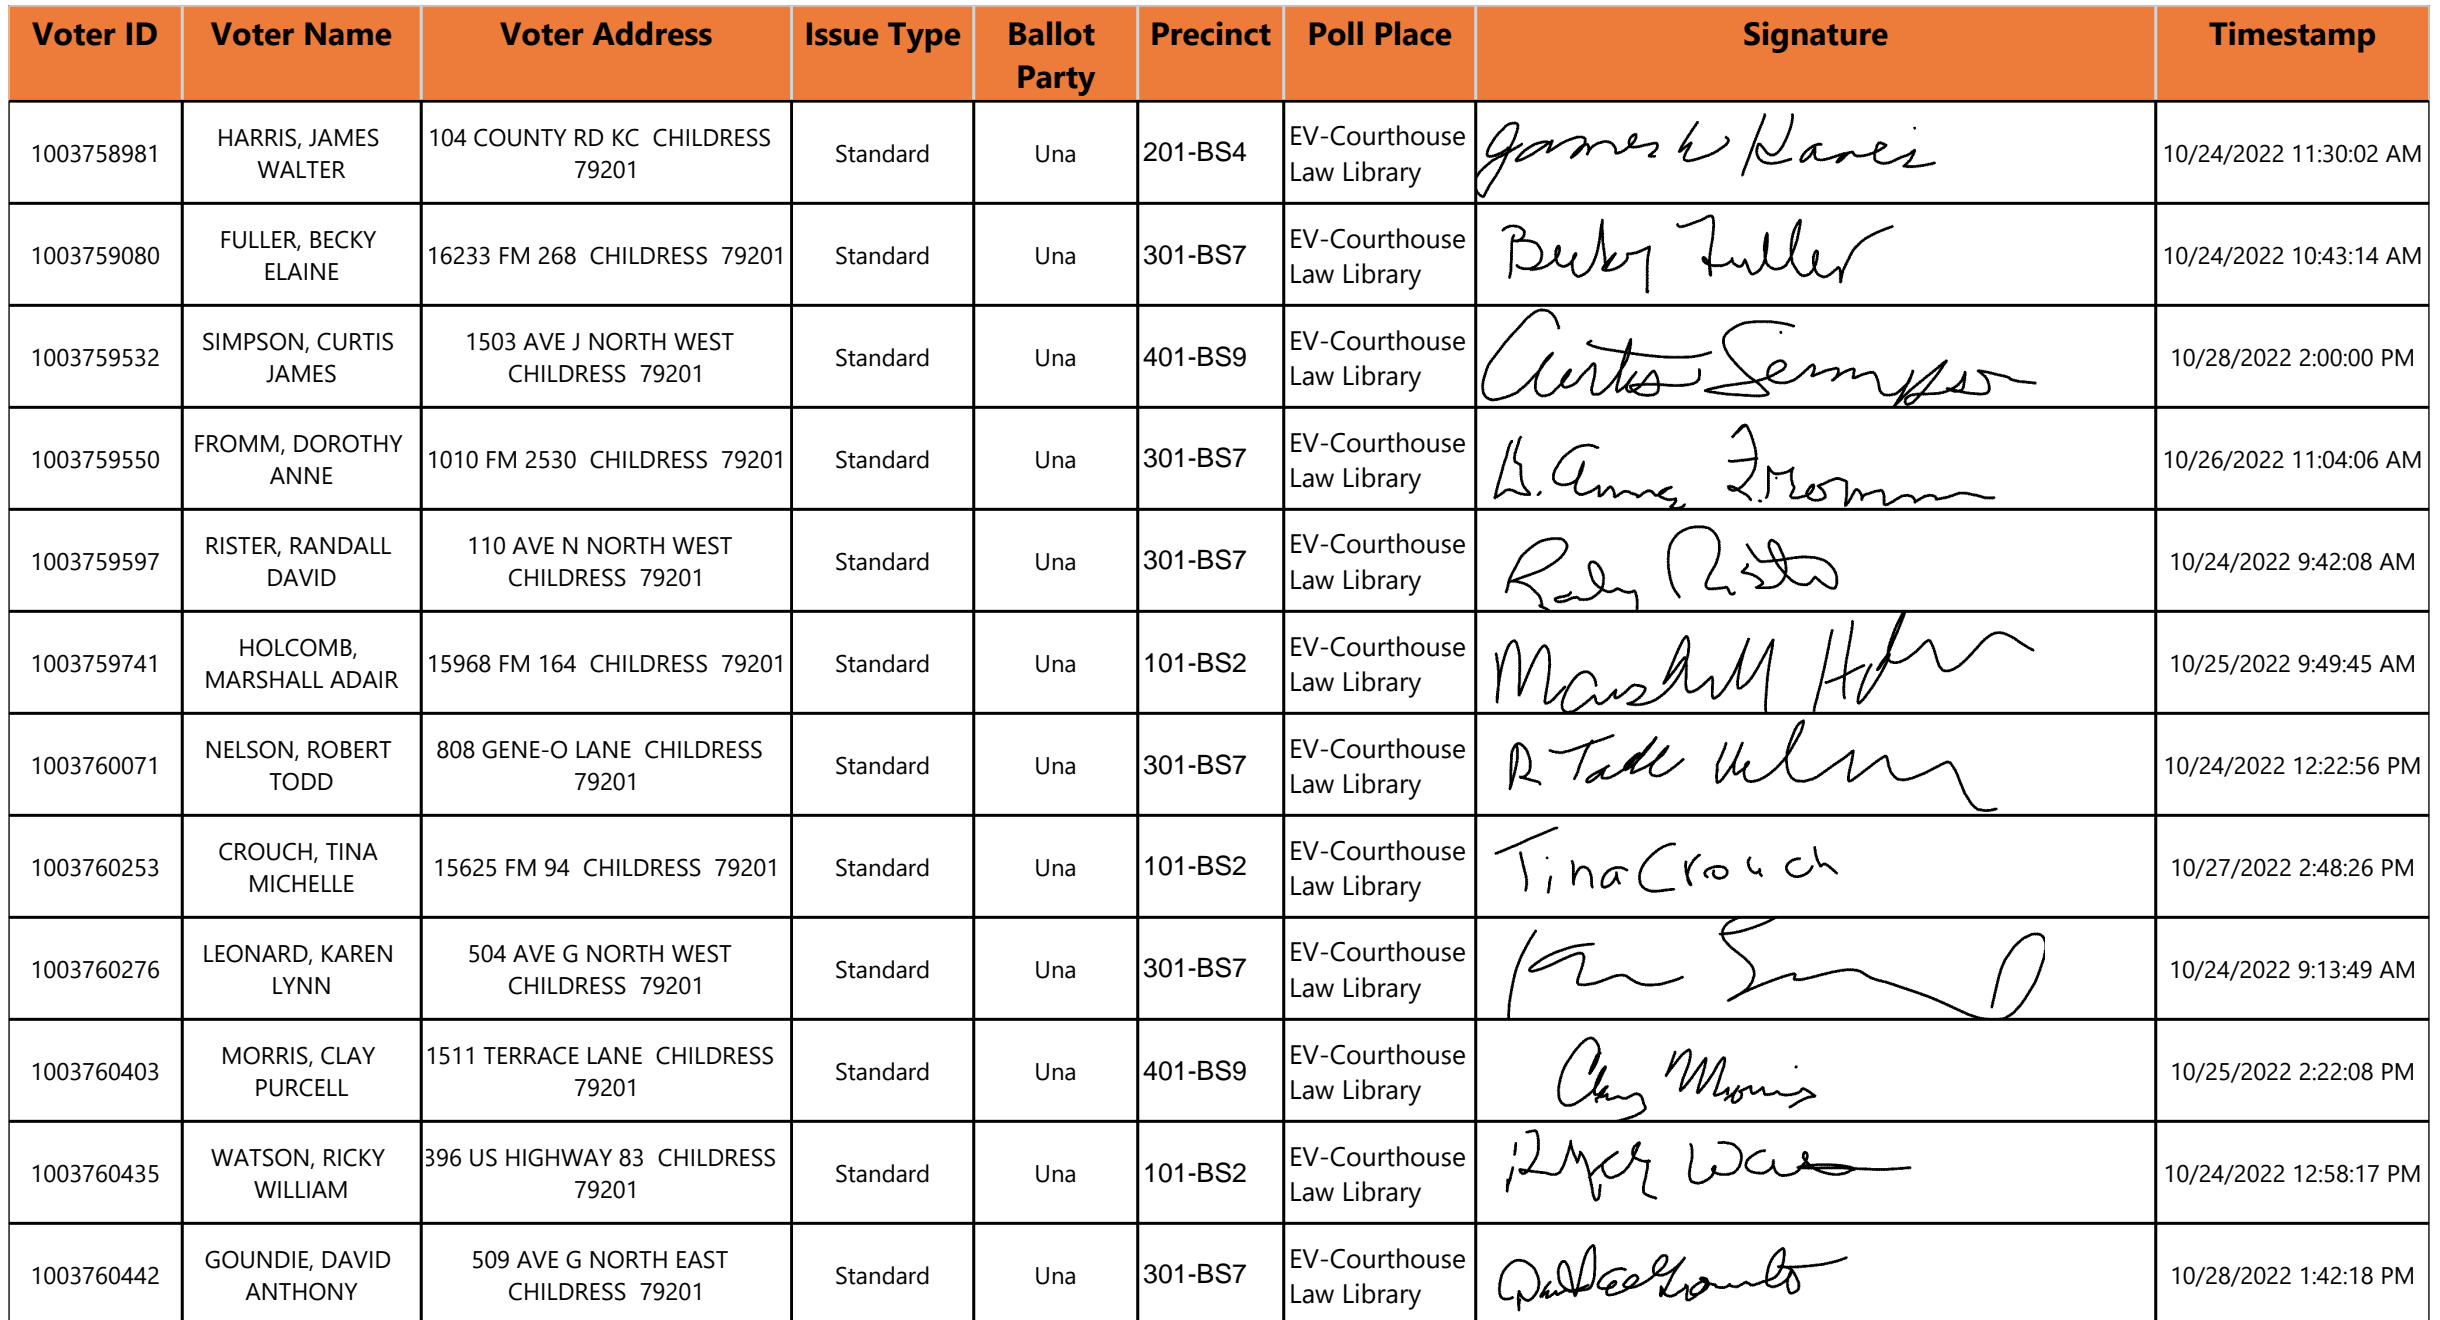 Voter ID Voter Name Voter Address Issue Type Ballot Party Precinct Poll Place Signature Timestamp
1003758981 HARRIS, JAMES WALTER 104 COUNTY RD KC CHILDRESS 79201 Standard Una 201-BS4 EV-Courthouse Law Library James W Harris 10/24/2022 11:30:02 AM
1003759080 FULLER, BECKY ELAINE 16233 FM 268 CHILDRESS 79201 Standard Una 301-BS7 EV-Courthouse Law Library Becky Fuller 10/24/2022 10:43:14 AM
1003759532 SIMPSON, CURTIS JAMES 1503 AVE J NORTH WEST CHILDRESS 79201 Standard Una 401-BS9 EV-Courthouse Law Library Curtis Simpson 10/28/2022 2:00:00 PM
1003759550 FROMM, DOROTHY ANNE 1010 FM 2530 CHILDRESS 79201 Standard Una 301-BS7 EV-Courthouse Law Library D. Anne Fromm 10/26/2022 11:04:06 AM
1003759597 RISTER, RANDALL DAVID 110 AVE N NORTH WEST CHILDRESS 79201 Standard Una 301-BS7 EV-Courthouse Law Library Randy Rister 10/24/2022 9:42:08 AM
1003759741 HOLCOMB, MARSHALL ADAIR 15968 FM 164 CHILDRESS 79201 Standard Una 101-BS2 EV-Courthouse Law Library Marshall 10/25/2022 9:49:45 AM
1003760071 NELSON, ROBERT TODD 808 GENE-O LANE CHILDRESS 79201 Standard Una 301-BS7 EV-Courthouse Law Library R Todd Nelson 10/24/2022 12:22:56 PM
1003760253 CROUCH, TINA MICHELLE 15625 FM 94 CHILDRESS 79201 Standard Una 101-BS2 EV-Courthouse Law Library Tina Crouch 10/27/2022 2:48:26 PM
1003760276 LEONARD, KAREN LYNN 504 AVE G NORTH WEST CHILDRESS 79201 Standard Una 301-BS7 EV-Courthouse Law Library 10/24/2022 9:13:49 AM
1003760403 MORRIS, CLAY PURCELL 1511 TERRACE LANE CHILDRESS 79201 Standard Una 401-BS9 EV-Courthouse Law Library Clay Morris 10/25/2022 2:22:08 PM
1003760435 WATSON, RICKY WILLIAM 396 US HIGHWAY 83 CHILDRESS 79201 Standard Una 101-BS2 EV-Courthouse Law Library 10/24/2022 12:58:17 PM
1003760442 GOUNDIE, DAVID ANTHONY 509 AVE G NORTH EAST CHILDRESS 79201 Standard Una 301-BS7 EV-Courthouse Law Library 10/28/2022 1:42:18 PM